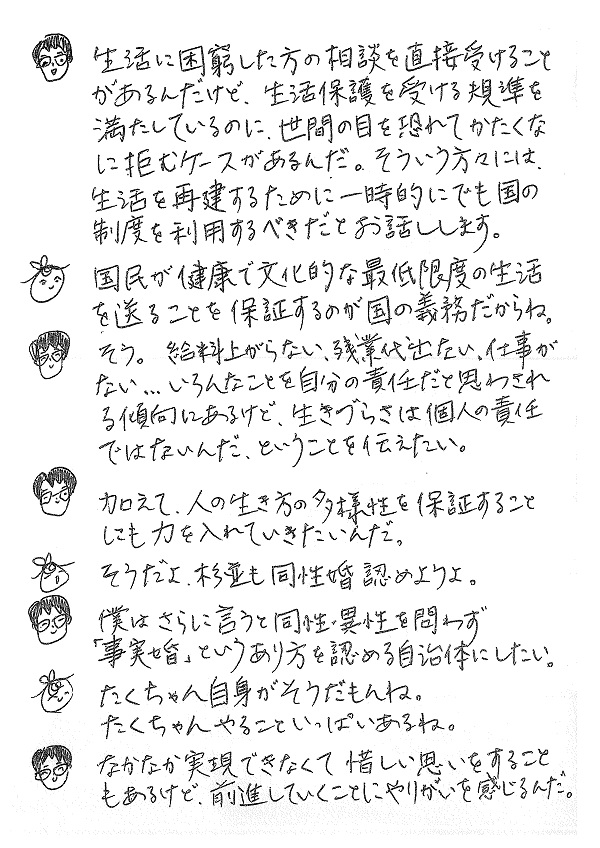 生活に困窮した方の相談を直接受けること
があるんだけど、生活保護を受ける規準を
満たしているのに、世間の目を恐れてかたくな
に拒むケースがあるんだ。そういう方々には、
生活を再建するために一時的にでも国の
制度を利用するべきだとお話しします。
国民が健康で文化的な最低限度の生活
を送ることを保証するのが国の義務だからね。
そう。給料上がらない、残業代出ない、仕事が
ない…いろんなことを自分の責任だと思わされ
る傾向にあるけど、生きづらさは個人の責任
ではないんだ、ということを伝えたい。
加えて、人の生き方の多様性を保証すること
にも力を入れていきたいんだ。
そうだよ、杉並も同性婚認めようよ。
僕はさらに言うと同性・異性を問わず
「事実婚」というあり方を認める自治体にしたい。
たくちゃん自身がそうだもんね。
たくちゃんやることいっぱいあるね。
なかなか実現できなくて惜しい思いをすること
もあるけど、前進していくことにやりがいを感じるんだ。